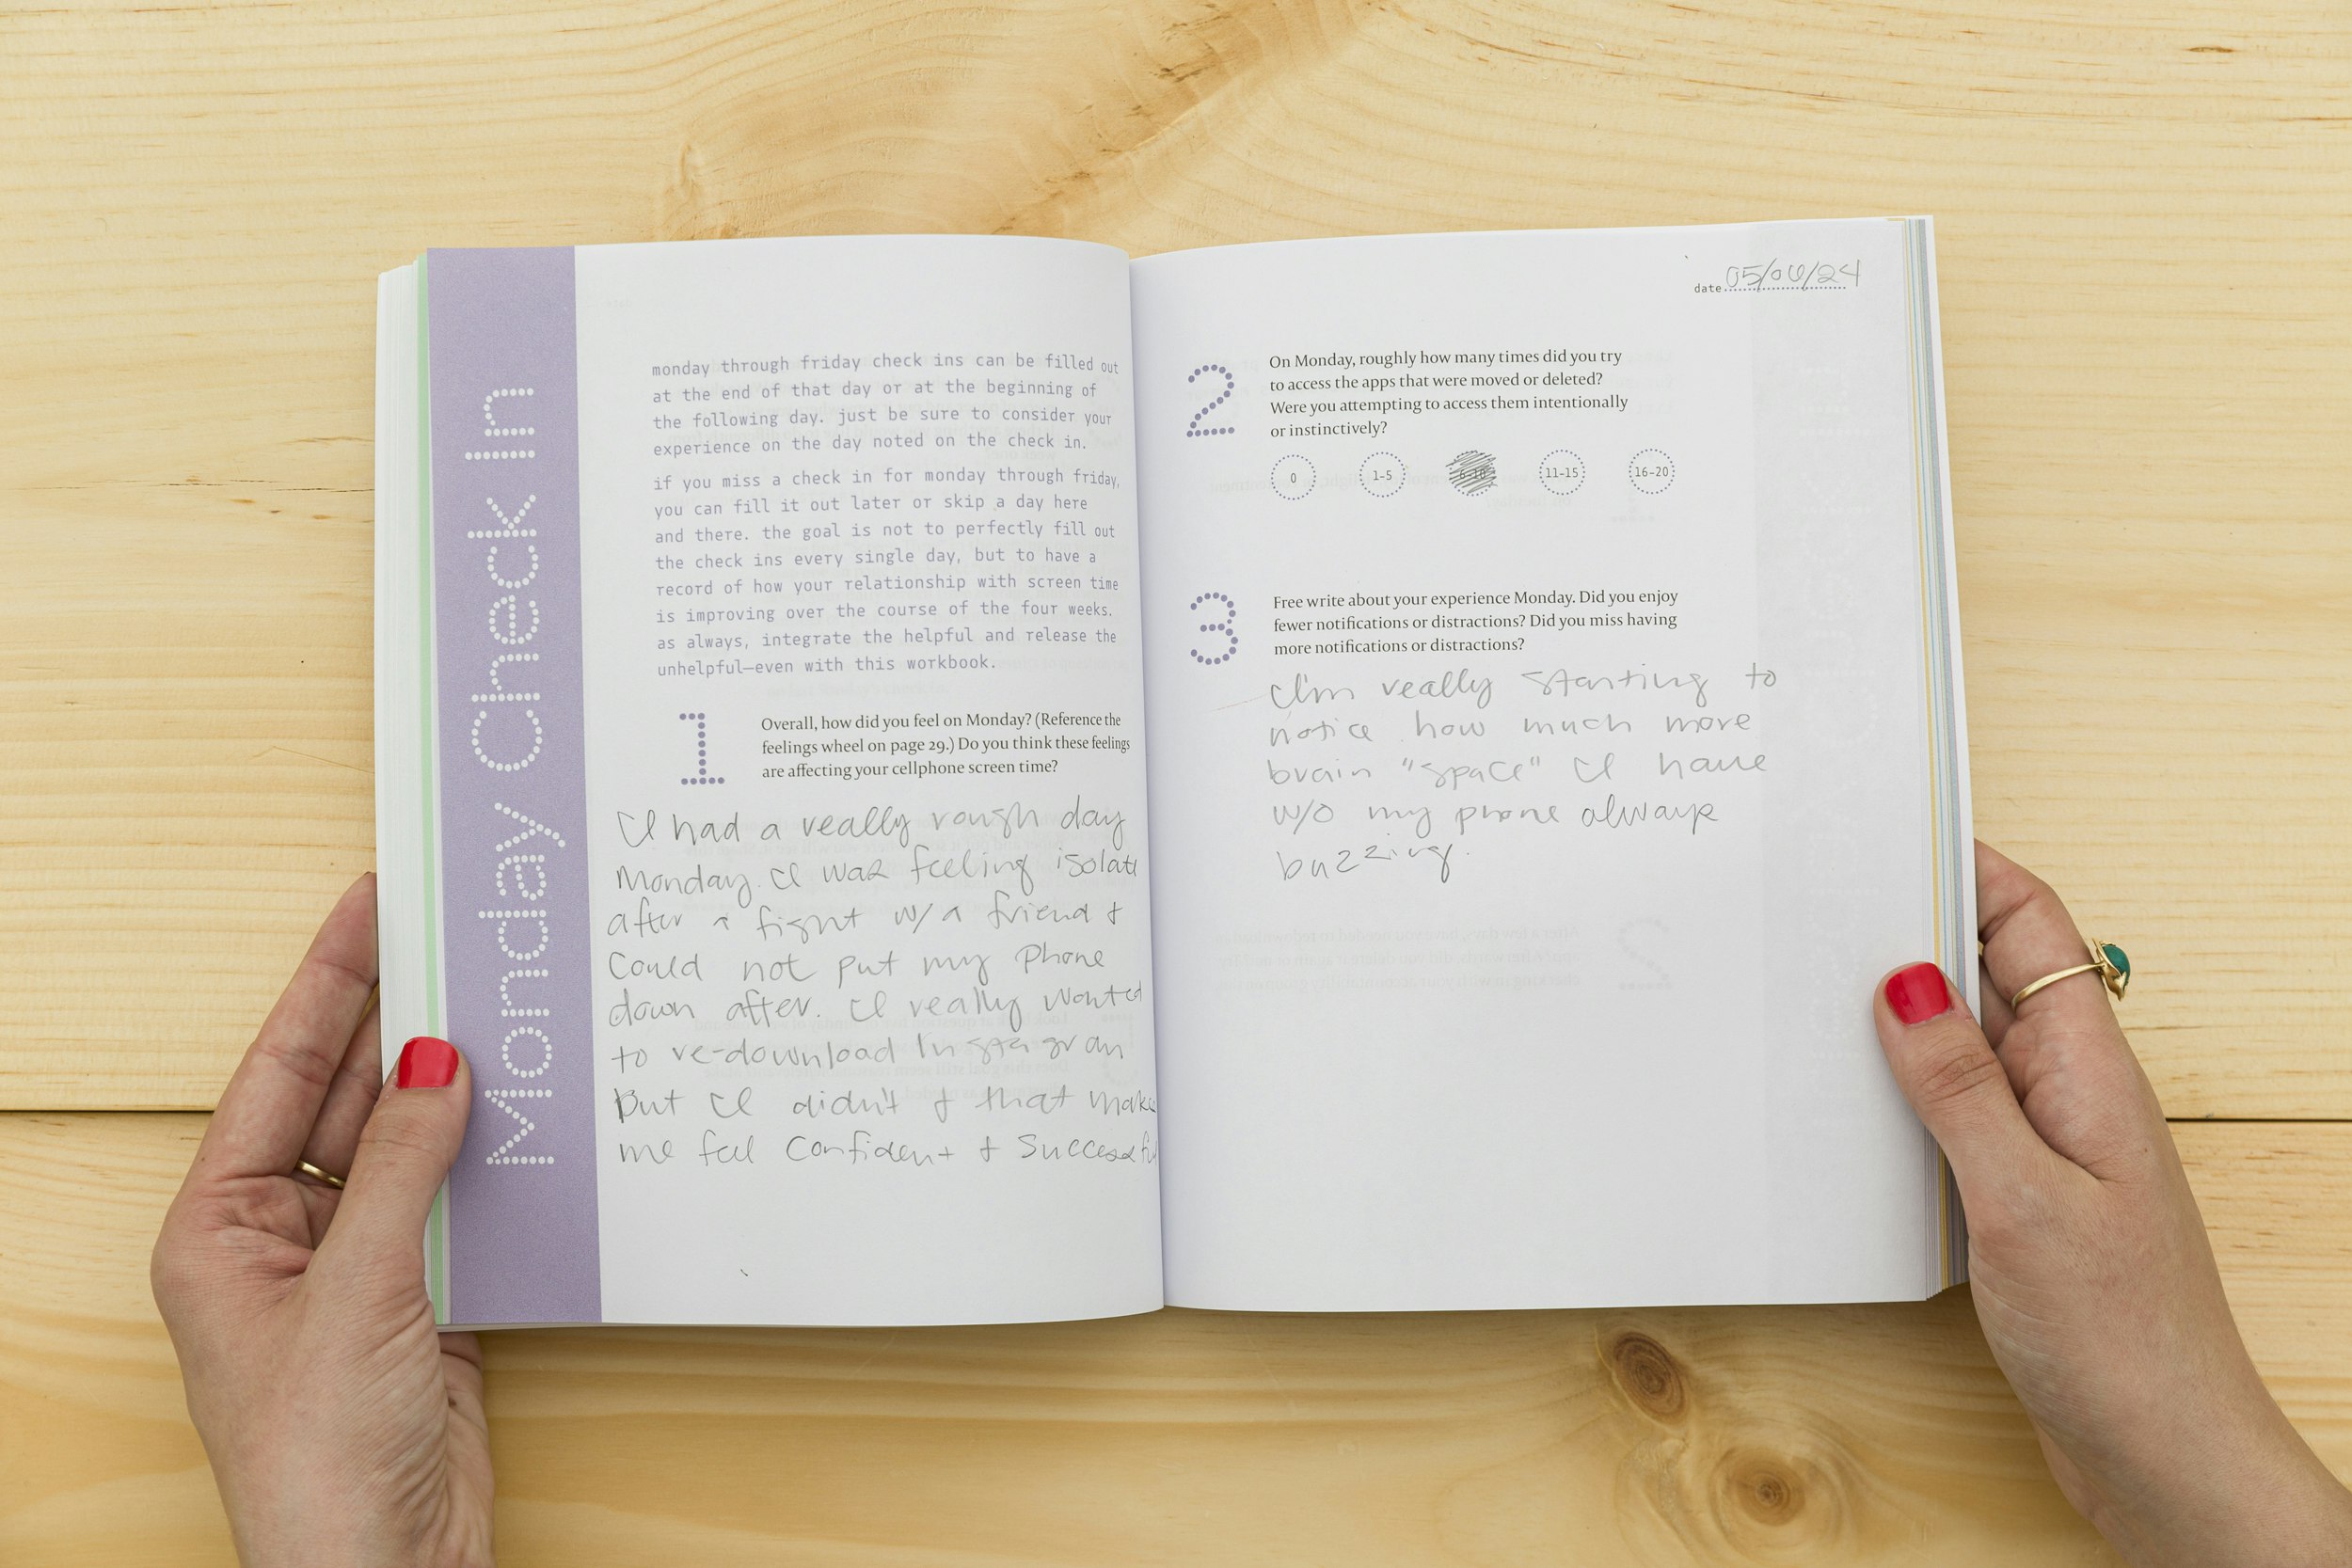 Monday Check In
monday through friday check ins can be filled out
at the end of that day or at the beginning of
the following day. just be sure to consider your
experience on the day noted on the check in.
if you miss a check in for monday through friday,
you can fill it out later or skip a day here
and there. the goal is not to perfectly fill out
the check ins every single day, but to have a
record of how your relationship with screen time
is improving over the course of the four weeks.
as always, integrate the helpful and release the
unhelpful—even with this workbook.
1
Overall, how did you feel on Monday? (Reference the
feelings wheel on page 29.) Do you think these feelings
are affecting your cellphone screen time?
I had a really rough day
Monday. I was feeling isolate
after a fight w/ a friend +
Could not put my phone
down after. I really wanted
to re-download Instagram
But I didn't + that make
me feel Confident + Successful
date 05/06/24
2
On Monday, roughly how many times did you try
to access the apps that were moved or deleted?
Were you attempting to access them intentionally
or instinctively?
0 1-5 6-10 11-15 16-20
3
Free write about your experience Monday. Did you enjoy
fewer notifications or distractions? Did you miss having
more notifications or distractions?
I'm really starting to
notice how much more
brain "space" I have
w/o my phone always
buzzing.